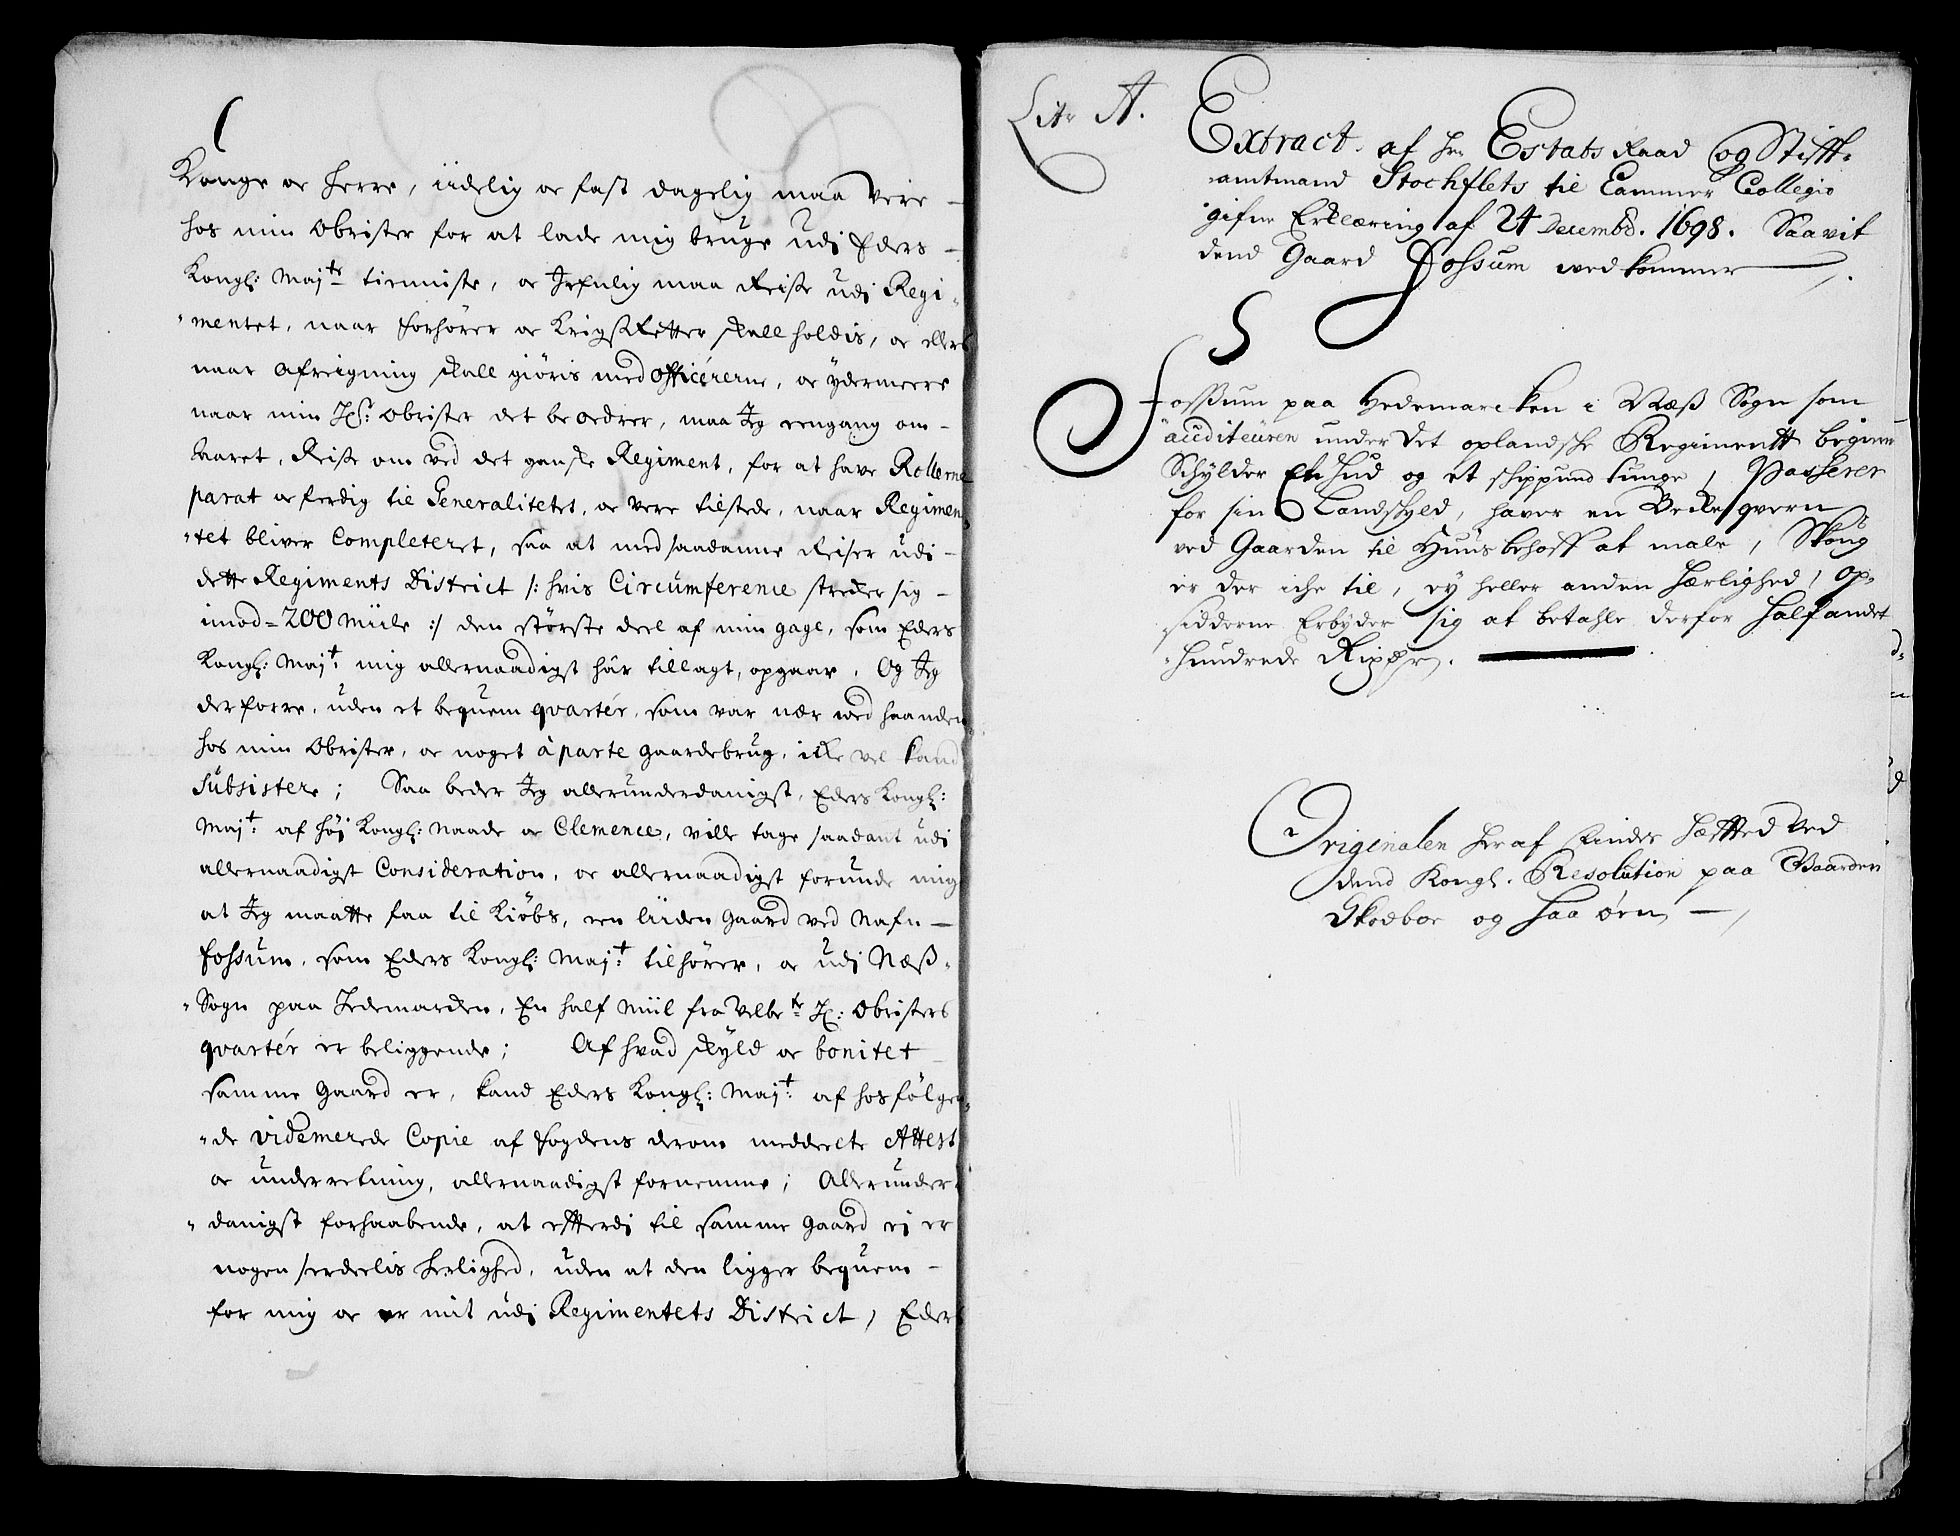 Konge oc Herre, iidelig oc fast dagelig maa være
hos min Obrister for at lade mig bruge udi Eders
Kongl: Maj:ts tienniste, oc Jefnlig maa Reise udi Regi-
mentet, naar forhører oc KrigsRetter skall holdis, oc ellers
naar Afreigning skall giøris med Officererne, oc ydermeere
naar min Hr: Obrister det beordrer, maa Jeg eengang om-
aaret, Reise om ved det gandske Regiment, for at have Rollerne
parat oc ferdig til Generalitetet, oc være tilstede, naar Regimen-
tet bliver Completeret, saa at med saadanne Reiser udi
dette Regiments District /: hvis Circumference strecker sig
imod 200 Miile :/ den største deel af min gage, som Eders
Kongl: Maj:t mig allernaadigst hâr tillagt, opgaar. Og Jeg
derforre, uden et beqvem qvartér, som var nær ved haanden
hos min Obrister, oc noget à parte gaardebrug, icke vel kand
Subsistere; Saa beder Jeg allerunderdanigst, Eders Kongl:
Maj:t af høj Kongl: Naade oc Clemence, ville tage saadant udi
allernaadigst Consideration, oc allernaadigst forunde mig
at Jeg maatte faa til Kiøbs, een liiden Gaard ved Nafn
Fossum, som Eders Kongl: Maj:t tilhører, oc udi Næss-
Sogn paa Hedemarcken, En half Miil fra Velb:te Hr: Obristers
qvartér er beliggende; Af hvad Skyld oc bonitet
samme Gaard er, kand Eders Kongl: Maj:t af hosfølgen-
de videmerede Copie af Fogdens derom meddeelte Attest
oc underretning, allernaadigst fornemme; Allerunder-
danigst forhaabende, at efterdj til samme Gaard ej er
nogen serdeelis herlighed, uden at den ligger beqvem
for mig oc er mit udi Regimentets District, Eders
Litr A.
Extract af Hr Estats Raad og Stift-
amtmand Stochflets til Cammer Collegio
gifne Erklæring af 24 Decembr. 1698. Saavit
dend Gaard Fossum vedkommer
Fossum paa Hedemarcken i Næss Sogn som
auditeüren under det oplandske Regimentt begierer
Schylder En Hud og et schippund tunge, Passerer
for sin Landskyld, haver en Becke qvern
ved Gaarden til Huusbehoff at male, Skoug
er der iche til, ey heller anden Herlighed, Op-
sidderne Erbyder sig at betahle derfor halfandet
hundrede Rixdr.
Originalen heraf findes hefftet ved
dend Kongl. Resolution paa Gaarden
Skedboe og Haaørn